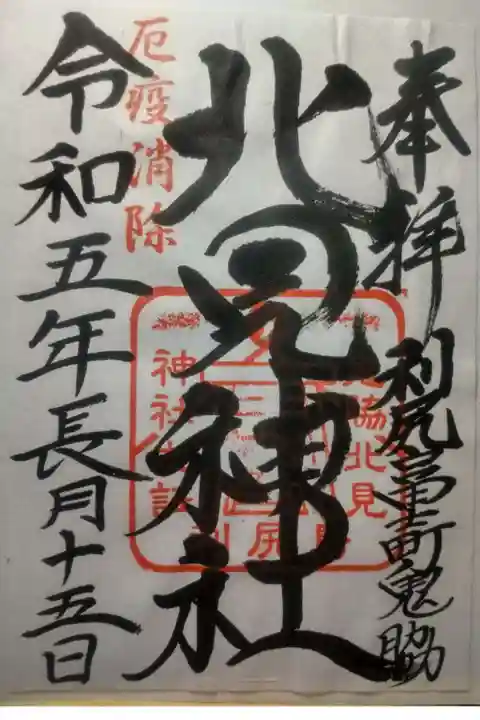 奉拝
利尻富士町鬼脇
北見神社
厄疫消除
令和五年長月十五日
脇北見
神社
利尻島